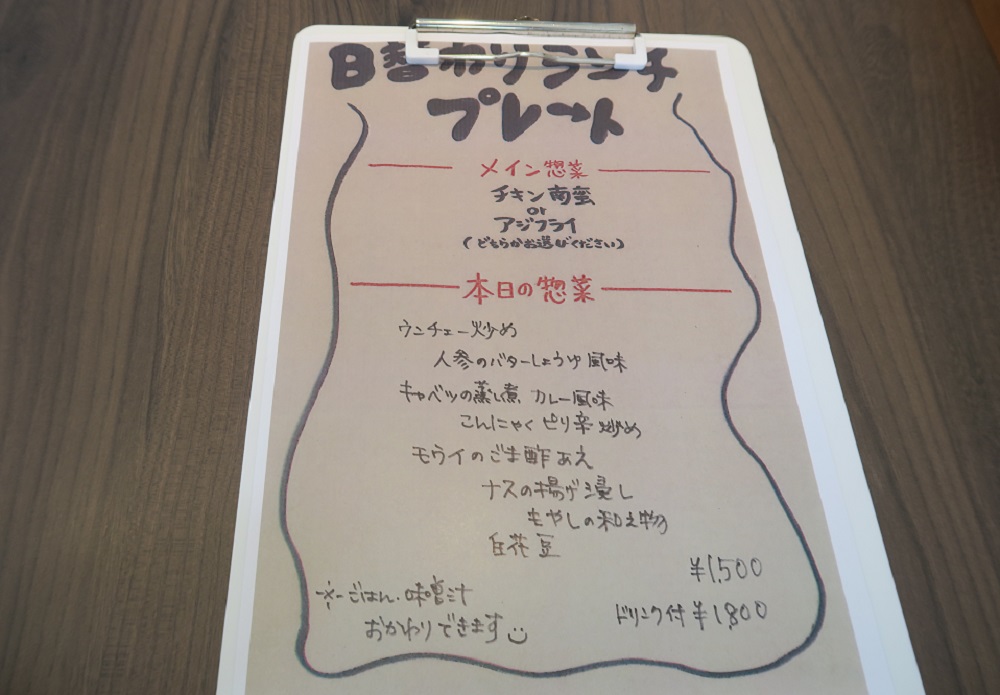 日替わりランチ
プレート
メイン惣菜
チキン南蛮
or
アジフライ
(どちらかお選びください)
本日の惣菜
ウンチェー炒め
人参のバターしょうゆ風味
キャベツの蒸し煮 カレー風味
こんにゃくピリ辛炒め
モウイのごま酢あえ
ナスの揚げ浸し
もやしの和え物
白花豆
¥1,500
※ごはん・味噌汁
おかわりできます
ドリンク付¥1,800